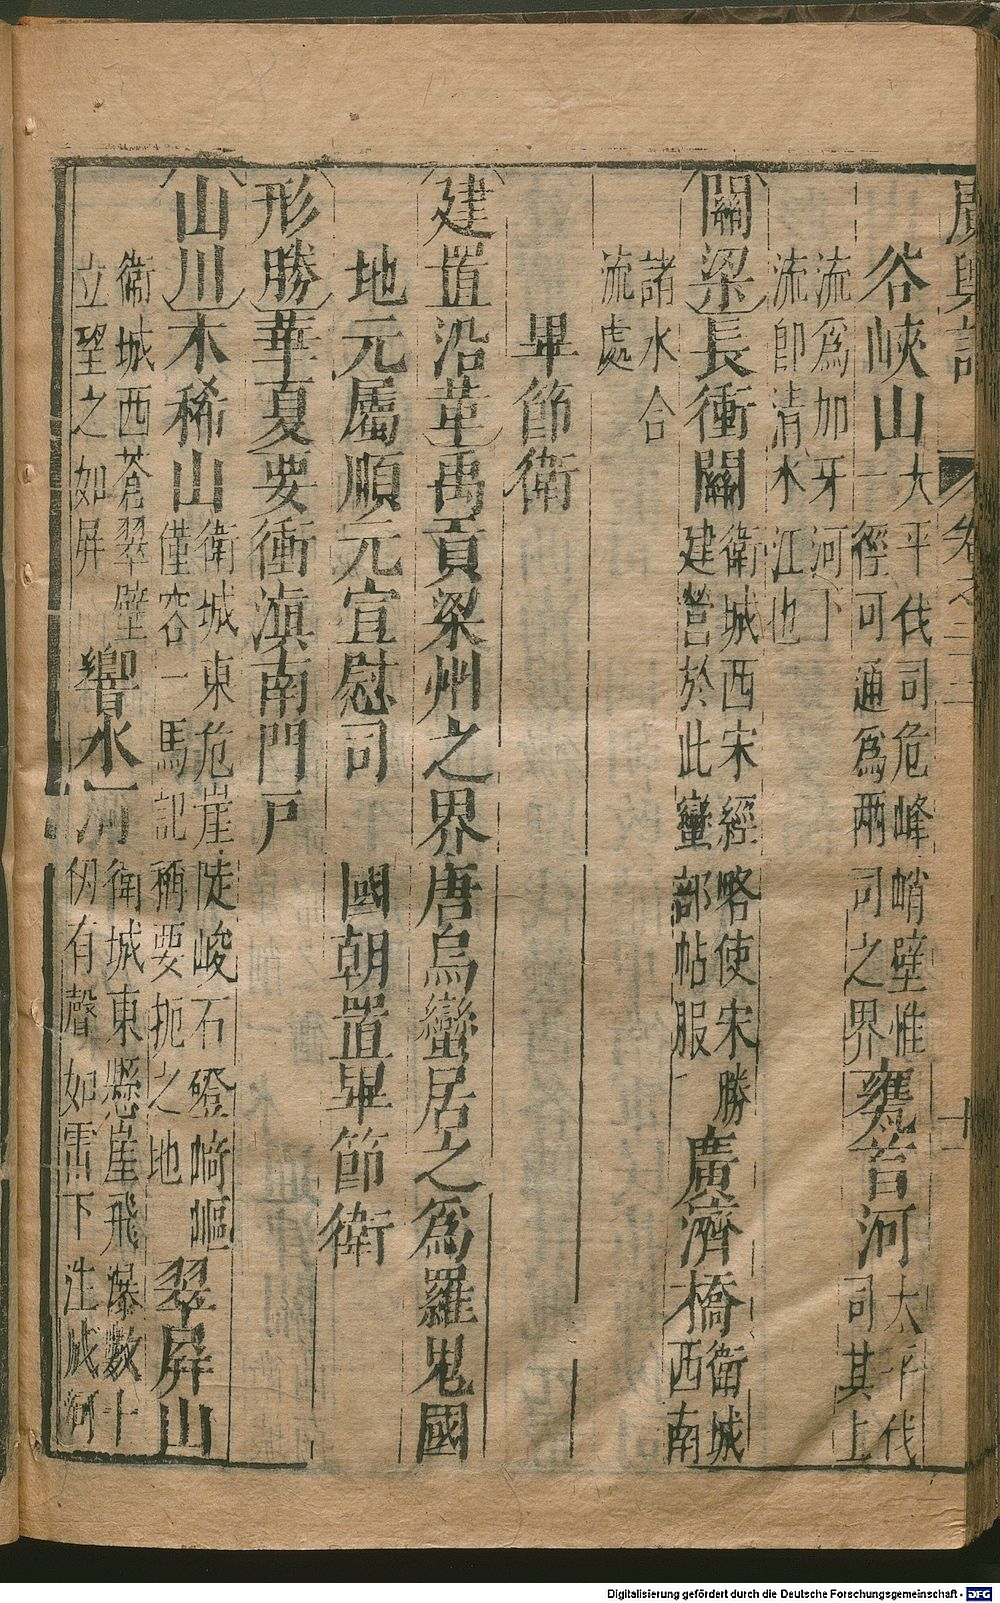 廣輿記 卷之二十二 十一
谷峽山大平伐司危峰峭壁惟
一徑可通爲兩司之界甕首河太平伐
司其上
流爲加牙河下
流即清水江也
關梁長衝關衛城西宋經略使宋勝
建營於此蠻部帖服廣濟橋衛城
西南
諸水合
流處
畢節衛
建置沿革禹貢梁州之界唐烏蠻居之爲羅鬼國
地元屬順元宣慰司 國朝置畢節衛
形勝華夏要衝滇南門戸
山川木稀山衛城東危崖陡峻石磴崎嶇
僅容一馬記稱要扼之地翠屏山
衛城西蒼翠壁
立望之如屏響水河衛城東懸崖飛瀑數十
仞有聲如雷下注成河
Digitalisierung gefördert durch die Deutsche Forschungsgemeinschaft - DFG